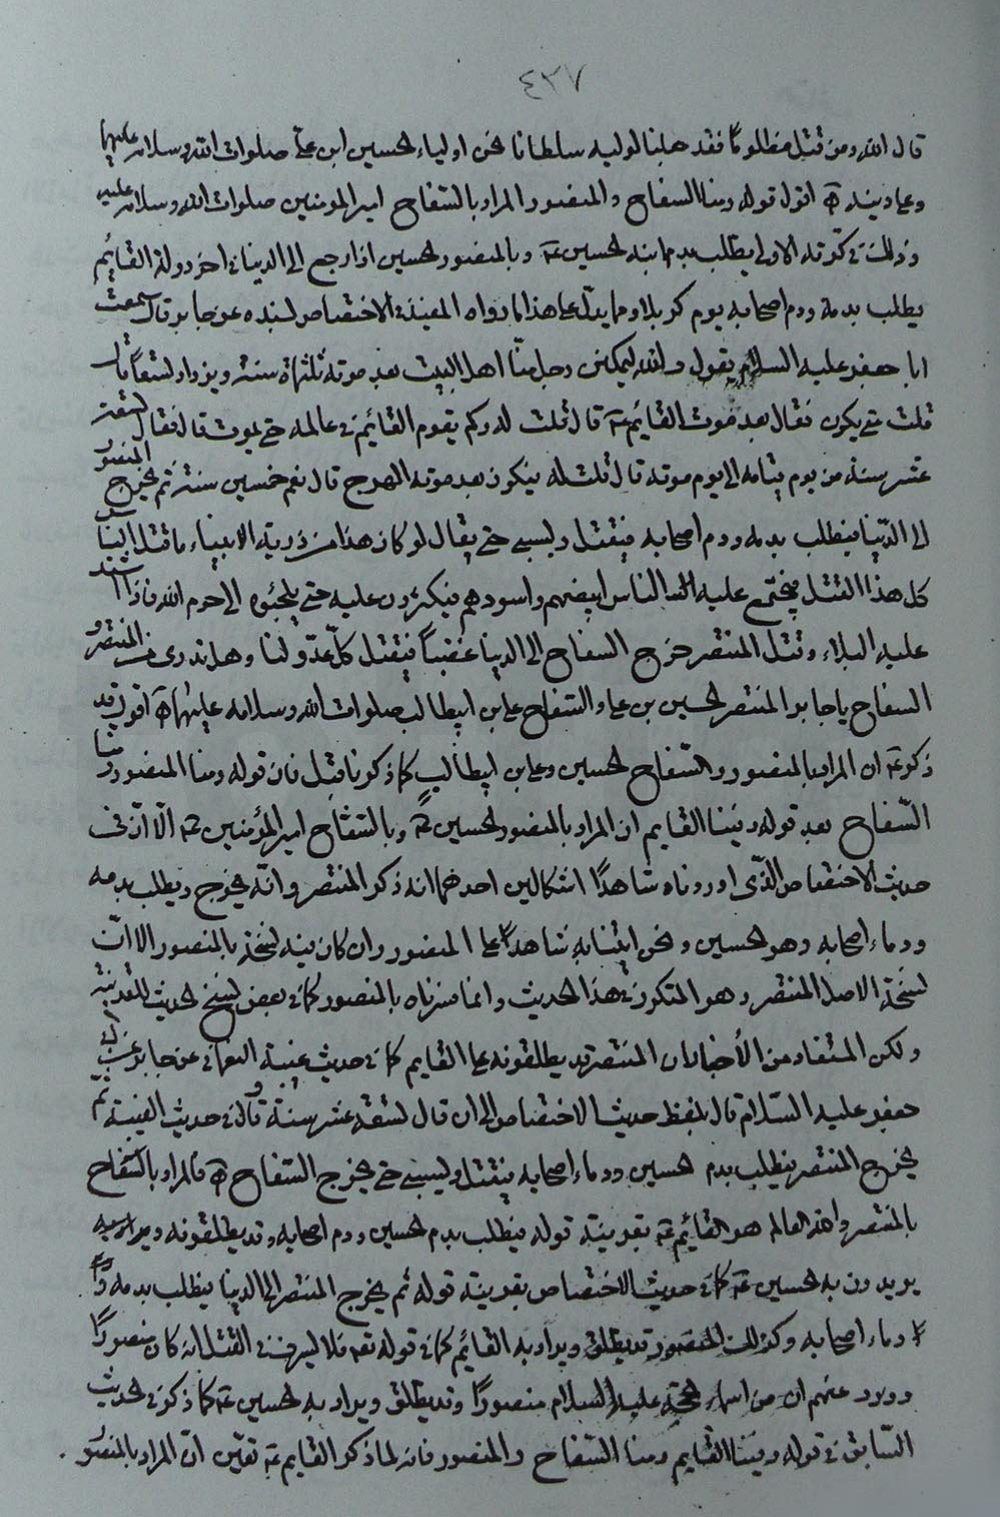 ٤٣٧
قال الله ومن قتل مظلوما فقد جعلنا لوليه سلطانا نحن اولياء الحسين ابن علي صلوات الله وسلامه عليهما
وعلى دينه اقول قوله ومنا السفاح والمنصور المراد بالسفاح امير المومنين صلوات الله وسلامه عليه
وذلك في كرته الاولى يطلب بدم ابنه الحسين ع وبالمنصور الحسين اذا رجع الى الدنيا في اخر دولة القائم
يطلب بدمه ودم اصحابه يوم كربلا ومما يدل على هذا ما رواه المفيد في الاختصاص بسنده عن جابر قال سمعت
ابا جعفر عليه السلام يقول والله ليملكن رجل منا اهل البيت بعد موته ثلثمائة سنة ويزداد تسعا قال
قلت متى يكون فقال بعد موت القائم ع قال قلت له وكم يقوم القائم في عالمه حتى يموت قال فقال تسعة
عشر سنة من يوم قيامه الى يوم موته قال قلت له فيكون بعد موته الهرج قال نعم خمسين سنة ثم يخرج المنتصر
الى الدنيا فيطلب بدمه ودم اصحابه فيقتل ويسبي حتى يقال لو كان هذا من ذرية الانبياء ما قتل الناس
كل هذا القتل فيجتمع عليه الناس ابيضهم واسودهم فيكثرون عليه حتى يلجئوه الى حرم الله فاذا اشتد
عليه البلاء وقتل المنتصر خرج السفاح الى الدنيا غضبا فيقتل كل عدو لنا وهل تدري من المنتصر و
السفاح يا جابر المنتصر الحسين بن علي والسفاح علي بن ابيطالب صلوات الله وسلامه عليهما اقول قد
ذكر ع ان المراد بالمنصور والسفاح الحسين وعلي بن ابيطالب كما ذكرنا قبل فان قوله ومنا المنصور ومنا
السفاح بعد قوله ومنا القايم ان المراد بالمنصور الحسين ع وبالسفاح امير المؤمنين ع الا ان في
حديث الاختصاص الذي اوردناه شاهدا اشكالين احدهما انه ذكر المنتصر وانه يخرج ويطلب بدمه
ودماء اصحابه وهو الحسين ونحن اتينا به شاهدا على المنصور وان كان فيه نسخة بالمنصور الا ان
نسخة الاصل المنتصر وهو المتكرر في هذا الحديث وانما فسرناه بالمنصور كما في بعض نسخ الحديث المتقدمة
ولكن المستفاد من الأخبار ان المنتصر قد يطلقونه على القايم كما في حديث غيبة النعماني عن جابر عن ابي
جعفر عليه السلام قال بلفظ حديث الاختصاص الى ان قال تسعة عشر سنة وقال في حديث الغيبة ثم
يخرج المنتصر فيطلب بدم الحسين ودماء اصحابه فيقتل ويسبي حتى يخرج السفاح فالمراد بالسفاح
بالمنتصر والله العالم هو القائم ع بقرينة قوله فيطلب بدم الحسين ودم اصحابه وقد يطلقونه
يريدون به الحسين ع كما في حديث الاختصاص بقرينة قوله ثم يخرج المنتصر الى الدنيا فيطلب بدمه
ودماء اصحابه وكذلك المنصور قد يطلق ويراد به القائم كما في قوله تعالى فلا يسرف في القتل انه كان منصورا
وورد عنهم ان من اسماء الحجة عليه السلام منصورا وقد يطلق ويراد به الحسين ع كما ذكر في الحديث
السابق في قوله ومنا القايم ومنا السفاح والمنصور فانه لما ذكر القايم ع تعين ان المراد بالمنصور